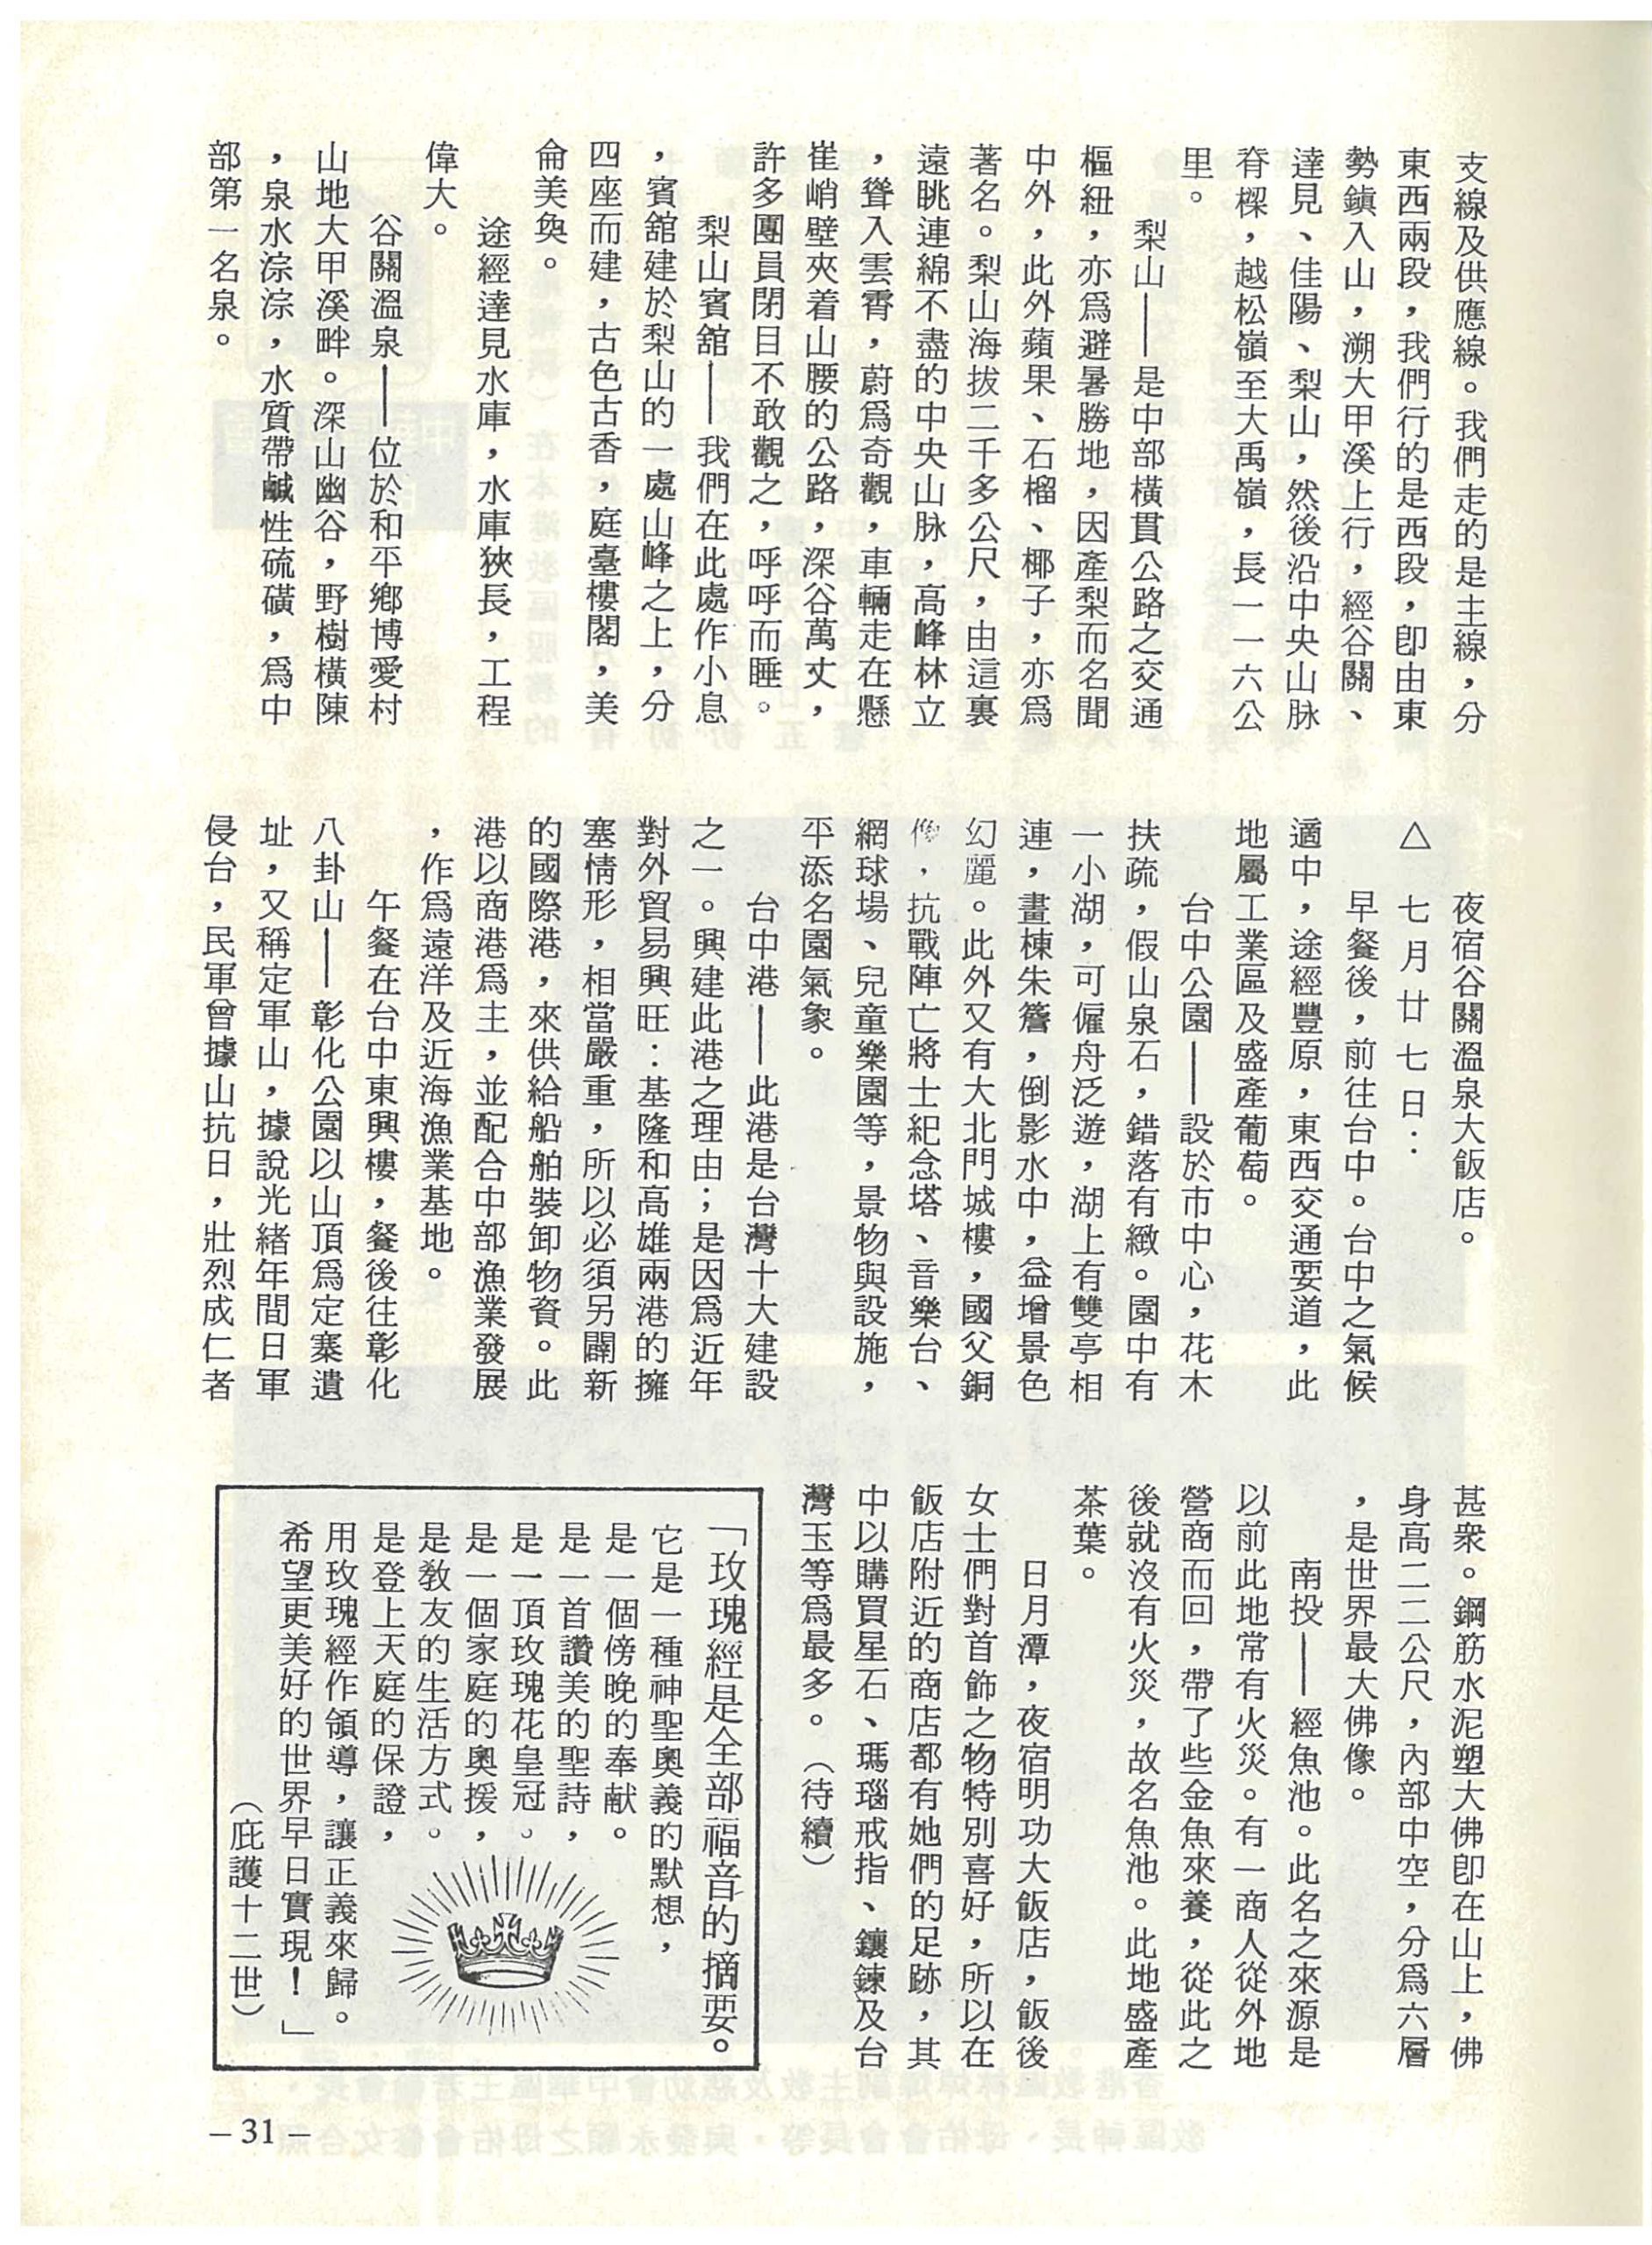 支線及供應線。我們走的是主線，分
東西兩段，我們行的是西段，卽由東
勢鎭入山，溯大甲溪上行，經谷關、
達見、佳陽、梨山，然後沿中央山脉
脊樑，越松嶺至大禹嶺，長一一六公
里。
梨山——是中部橫貫公路之交通
樞紐，亦爲避暑勝地，因產梨而名聞
中外，此外蘋果、石榴、椰子，亦爲
著名。梨山海拔二千多公尺，由這裏
遠眺連綿不盡的中央山脉，高峰林立
，聳入雲霄，蔚爲奇觀，車輛走在懸
崖峭壁夾着山腰的公路，深谷萬丈，
許多團員閉目不敢觀之，呼呼而睡。
梨山賓舘——我們在此處作小息
，賓舘建於梨山的一處山峰之上，分
四座而建，古色古香，庭臺樓閣，美
侖美奐。
途經達見水庫，水庫狹長，工程
偉大。
谷關溫泉——位於和平鄕博愛村
山地大甲溪畔。深山幽谷，野樹橫陳
，泉水淙淙，水質帶鹹性硫磺，爲中
部第一名泉。
夜宿谷關溫泉大飯店。
△　七月廿七日：
早餐後，前往台中。台中之氣候
適中，途經豐原，東西交通要道，此
地屬工業區及盛產葡萄。
台中公園——設於市中心，花木
扶疏，假山泉石，錯落有緻。園中有
一小湖，可僱舟泛遊，湖上有雙亭相
連，畫棟朱簷，倒影水中，益增景色
幻麗。此外又有大北門城樓，國父銅
像，抗戰陣亡將士紀念塔、音樂台、
網球場、兒童樂園等，景物與設施，
平添名園氣象。
台中港——此港是台灣十大建設
之一。興建此港之理由；是因爲近年
對外貿易興旺：基隆和高雄兩港的擁
塞情形，相當嚴重，所以必須另闢新
的國際港，來供給船舶裝卸物資。此
港以商港爲主，並配合中部漁業發展
，作爲遠洋及近海漁業基地。
午餐在台中東興樓，餐後往彰化
八卦山——彰化公園以山頂爲定寨遺
址，又稱定軍山，據說光緒年間日軍
侵台，民軍曾據山抗日，壯烈成仁者
甚衆。鋼筋水泥塑大佛卽在山上，佛
身高二二公尺，內部中空，分爲六層
，是世界最大佛像。
南投——經魚池。此名之來源是
以前此地常有火災。有一商人從外地
營商而回，帶了些金魚來養，從此之
後就沒有火災，故名魚池。此地盛產
茶葉。
日月潭，夜宿明功大飯店，飯後
女士們對首飾之物特別喜好，所以在
飯店附近的商店都有她們的足跡，其
中以購買星石、瑪瑙戒指、鑲鍊及台
灣玉等爲最多。（待續）
「玫瑰經是全部福音的摘要。
它是一種神聖奧義的默想，
是一個傍晚的奉献。
是一首讚美的聖詩，
是一頂玫瑰花皇冠。
是一個家庭的奧援，
是敎友的生活方式。
是登上天庭的保證，
用玫瑰經作領導，讓正義來歸。
希望更美好的世界早日實現！」
（庇護十二世）
– 31 –